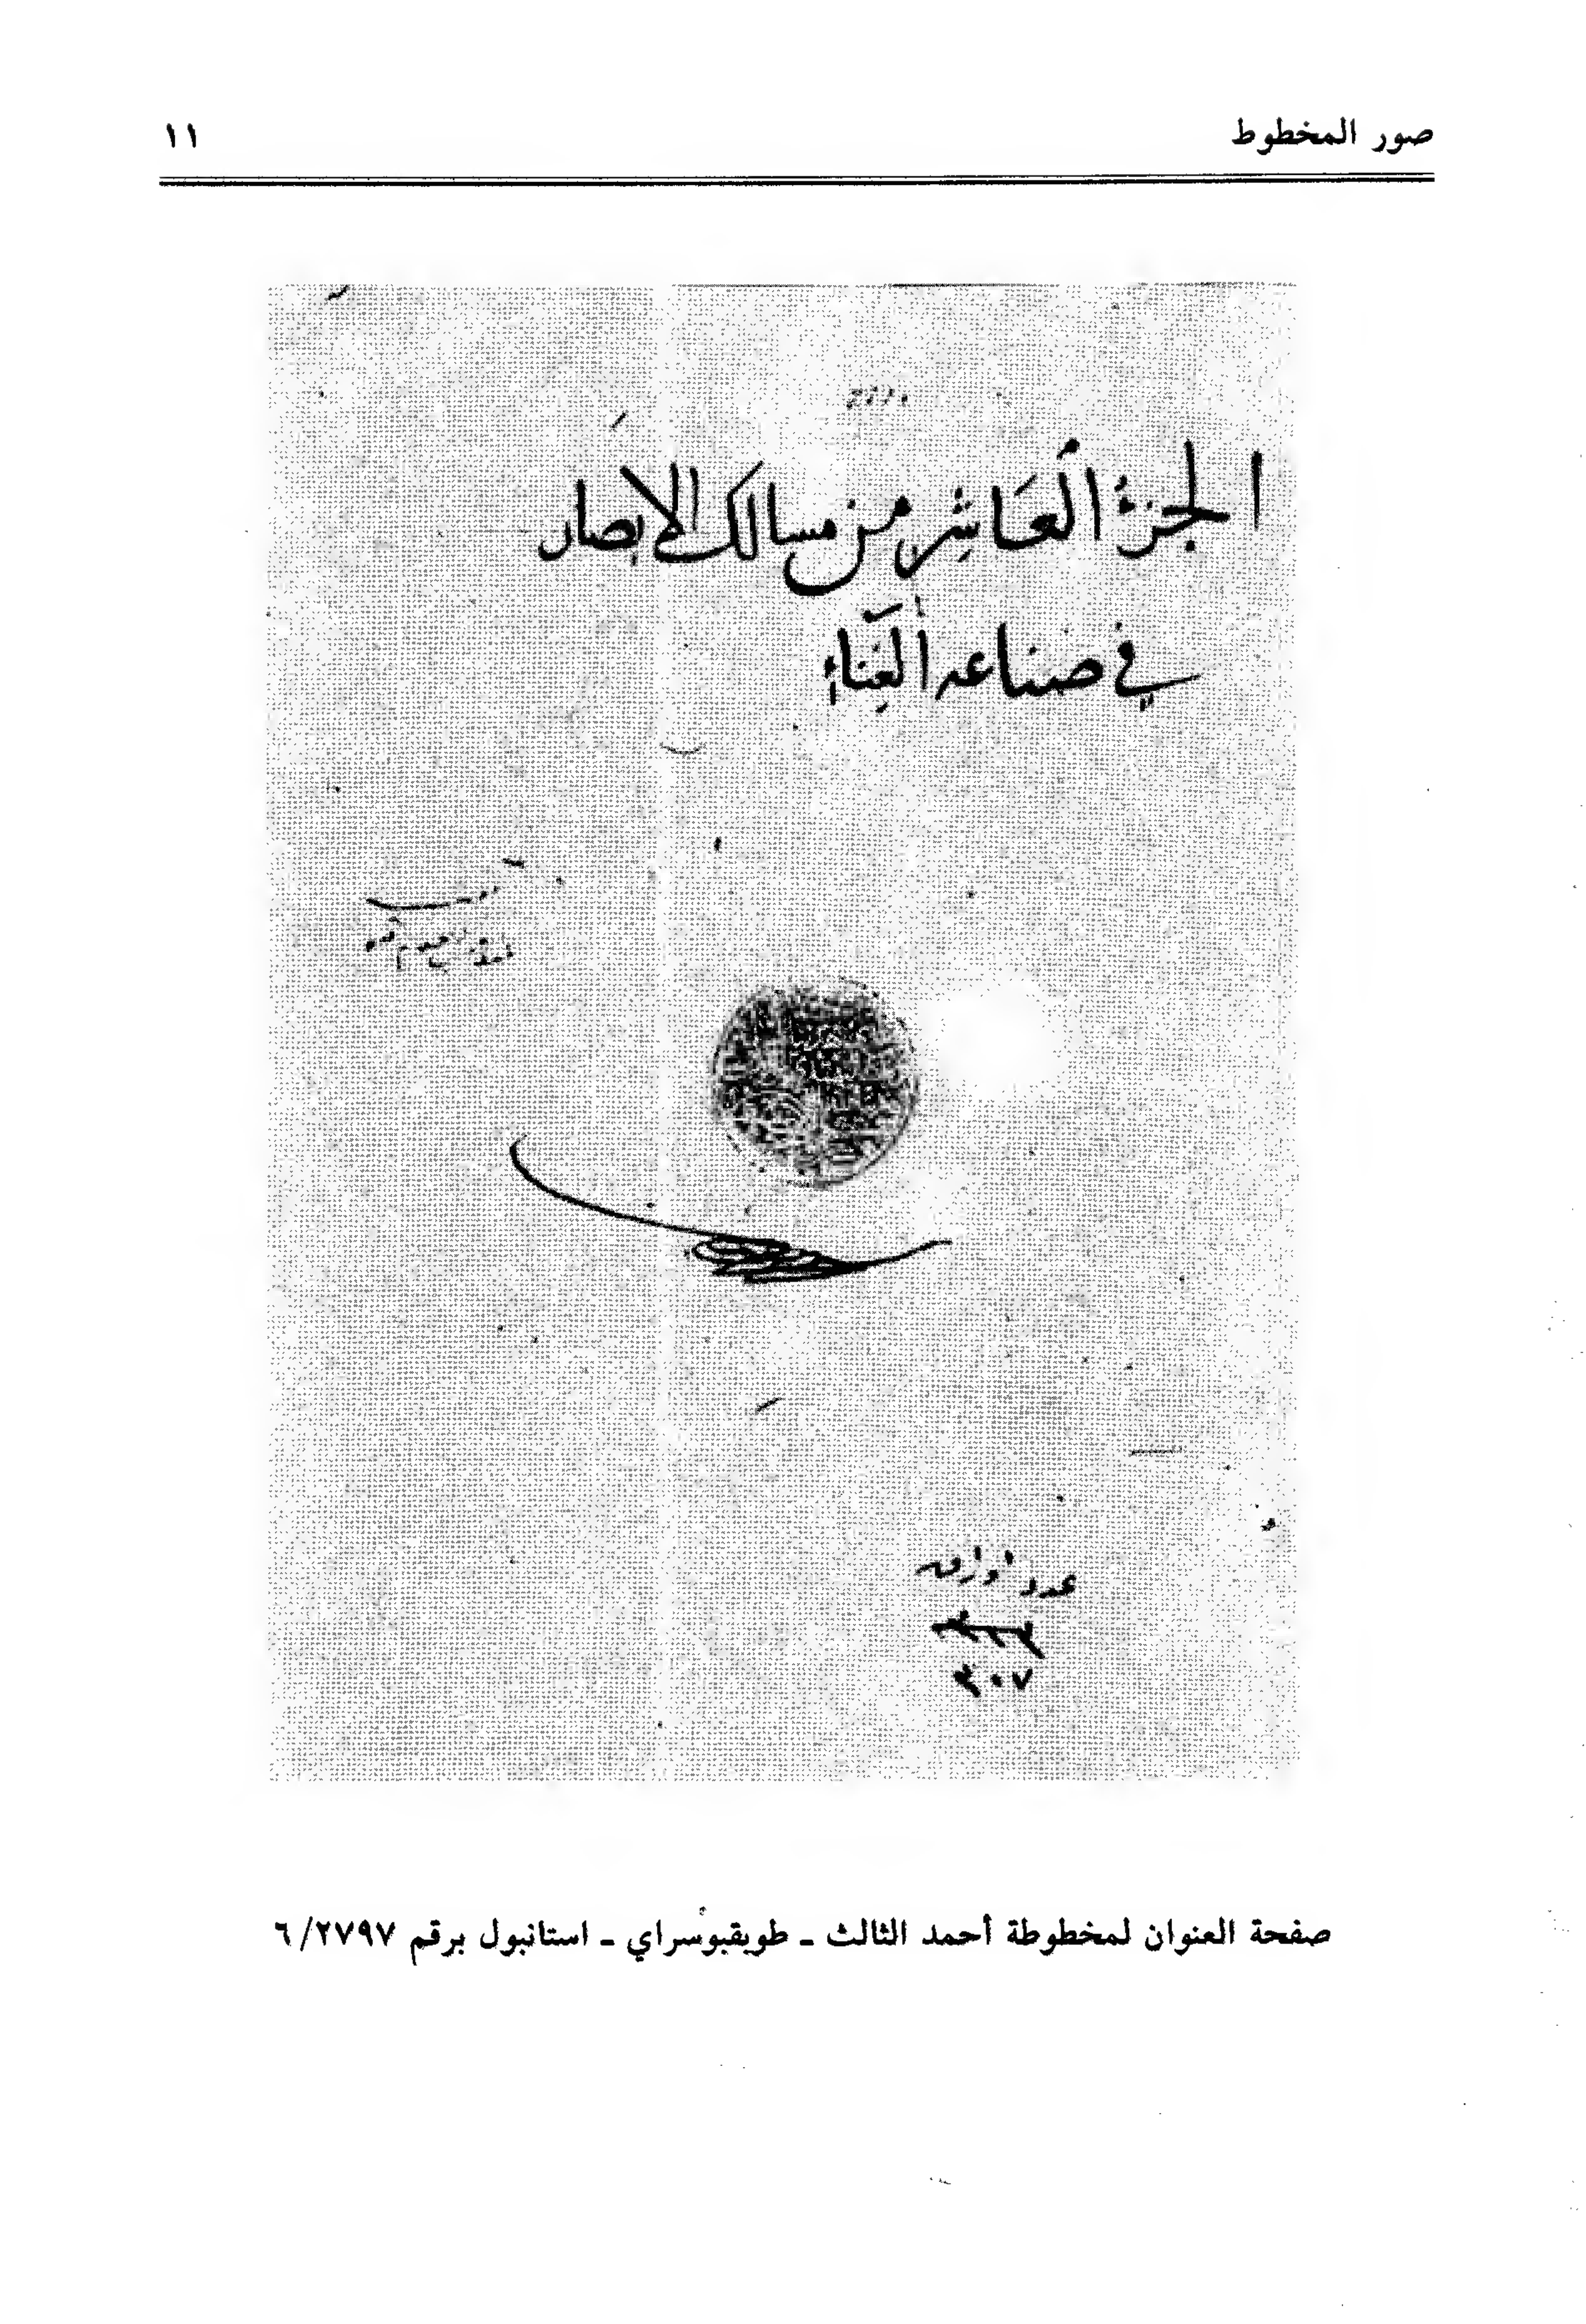 صور المخطوط
١١
الجزء العاشر من مسالك الابصار
في صناعه الغناء
عدد اوراق
٣٠٧
صفحة العنوان لمخطوطة أحمد الثالث ـ طوبقبوسراي ـ استانبول برقم ٢٧٩٧/ ٦